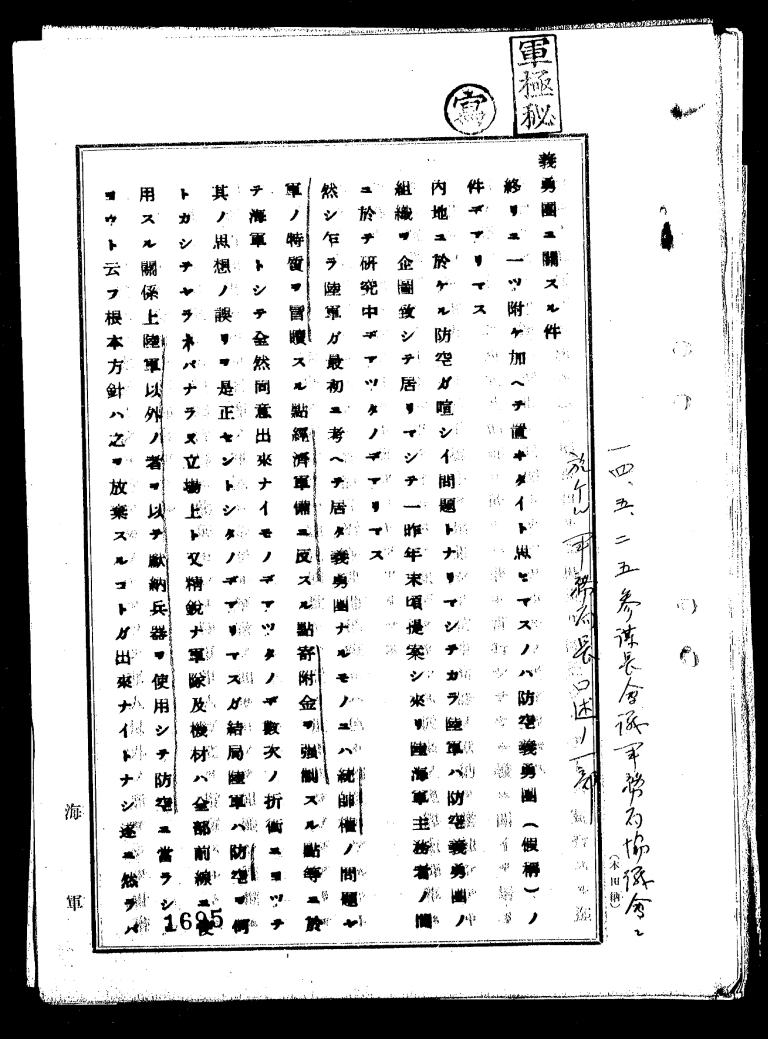 軍極秘
寫
一四、五、二五參謀長會議軍務局協議會ニ
於ケル軍務局長口述ノ一部
義勇團ニ關スル件
終リニ一ツ附ケ加ヘテ置キタイト思ヒマスノハ防空義勇團(假稱)ノ
件デアリマス
內地ニ於ケル防空ガ喧シイ問題トナリマシテカラ陸軍ハ防空義勇團ノ
組織ヲ企圖致シテ居リマシテ一昨年末頃提案シ來リ陸海軍主務者ノ間
ニ於テ研究中デアツタノデアリマス
然シ乍ラ陸軍ガ最初ニ考ヘテ居タ義勇團ナルモノニハ統帥權ノ問題ヤ
軍ノ特質ヲ冒瀆スル點經濟軍備ニ反スル點寄附金ヲ强制スル點等ニ於
テ海軍トシテ全然同意出來ナイモノデアツタノデ數次ノ折衝ニヨツテ
其ノ思想ノ誤リヲ是正セントシタノデアリマスガ結局陸軍ハ防空ヲ何
トカシテヤラネバナラヌ立場上ト又精銳ナ軍隊及機材ハ全部前線ニ使
用スル關係上陸軍以外ノ者ヲ以テ獻納兵器ヲ使用シテ防空ニ當ラシ
ヨウト云フ根本方針ハ之ヲ放棄スルコトガ出來ナイトナシ遂ニ然ラバ
海軍
1695